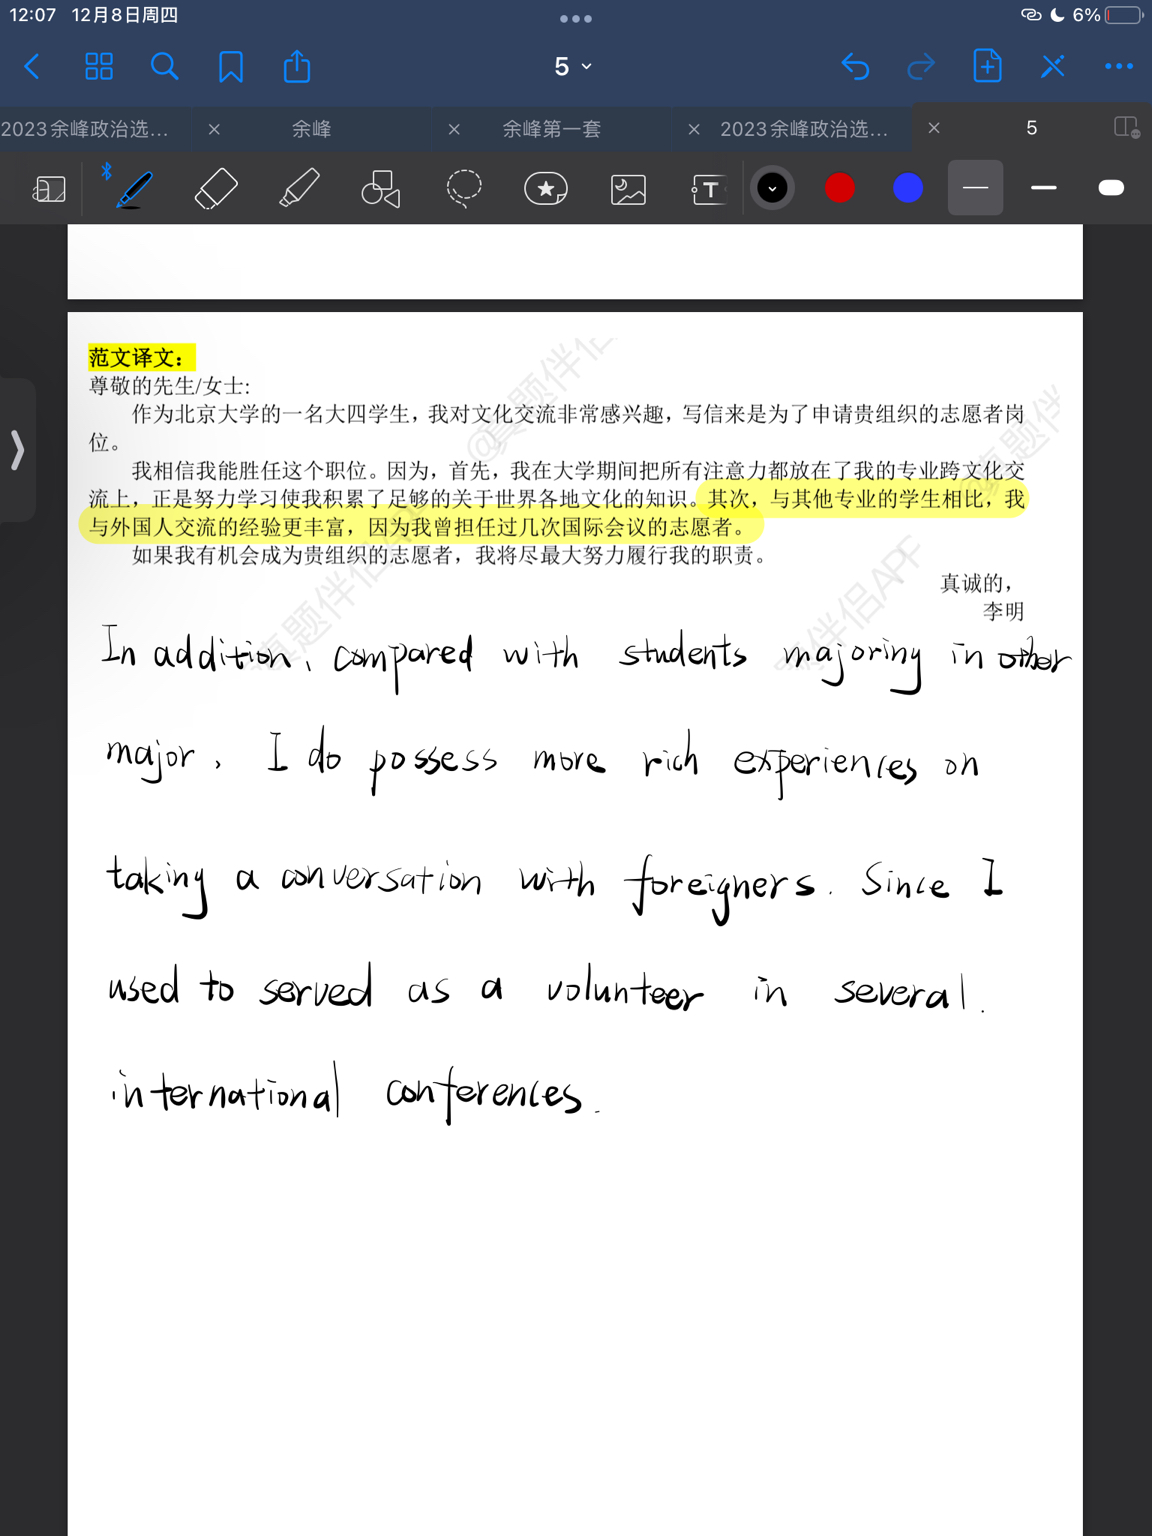 12:07 12月8日周四
6%
5
2023余峰政治选...
余峰
余峰第一套
2023余峰政治选...
5
T
范文译文：
尊敬的先生/女士:
作为北京大学的一名大四学生，我对文化交流非常感兴趣，写信来是为了申请贵组织的志愿者岗
位。
我相信我能胜任这个职位。因为，首先，我在大学期间把所有注意力都放在了我的专业跨文化交
流上，正是努力学习使我积累了足够的关于世界各地文化的知识。其次，与其他专业的学生相比，我
与外国人交流的经验更丰富，因为我曾担任过几次国际会议的志愿者。
如果我有机会成为贵组织的志愿者，我将尽最大努力履行我的职责。
真诚的，
李明
In addition, compared with students majoring in other
major, I do possess more rich experiences on
taking a conversation with foreigners. Since I
used to served as a volunteer in several.
international conferences.
@真题伴侣
@真题伴
真题伴侣
题伴侣APP